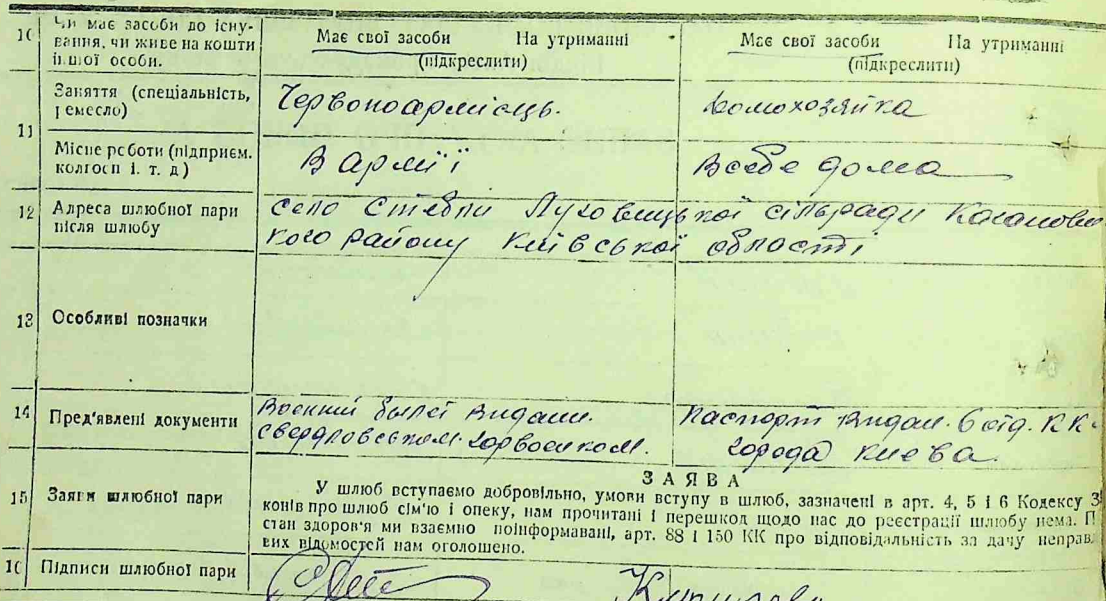 10 Чи має засоби до існу-
вання, чи живе на кошти
іншої особи.
Має свої засоби На утриманні
(підкреслити)
Має свої засоби На утриманні
(підкреслити)
11 Заняття (спеціальність,
ремесло)
Червоноармієць.
Домохозяйка
Місце роботи (підприєм.
колгосп і. т. д)
В армії
В себе дома
12 Адреса шлюбної пари
після шлюбу
село Стебли Луговицької сільради Кагановиц
кого району Київської області
13 Особливі позначки
14 Пред'явлені документи
Военний билет видани.
Свердловським. горвоенком.
Паспорт видан. 6 від. К.К.
города Києва
15 Заяви шлюбної пари
ЗАЯВА
У шлюб вступаємо добровільно, умови вступу в шлюб, зазначені в арт. 4, 5 і 6 Кодексу З
конів про шлюб сім'ю і опеку, нам прочитані і перешкод щодо нас до реєстрації шлюбу нема. П
стан здоров'я ми взаємно поінформавані, арт. 88 і 150 КК про відповідальність за дачу неправ
вих відомостей нам оголошено.
16 Підписи шлюбної пари